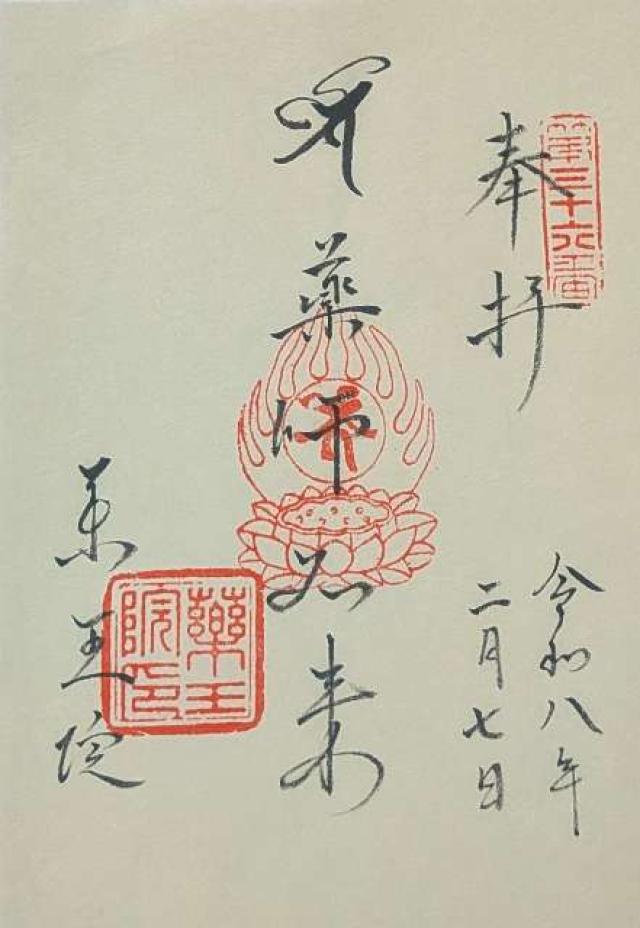 第三十六番
奉拝
令和八年
二月七日
薬師如来
薬王院
薬王院印